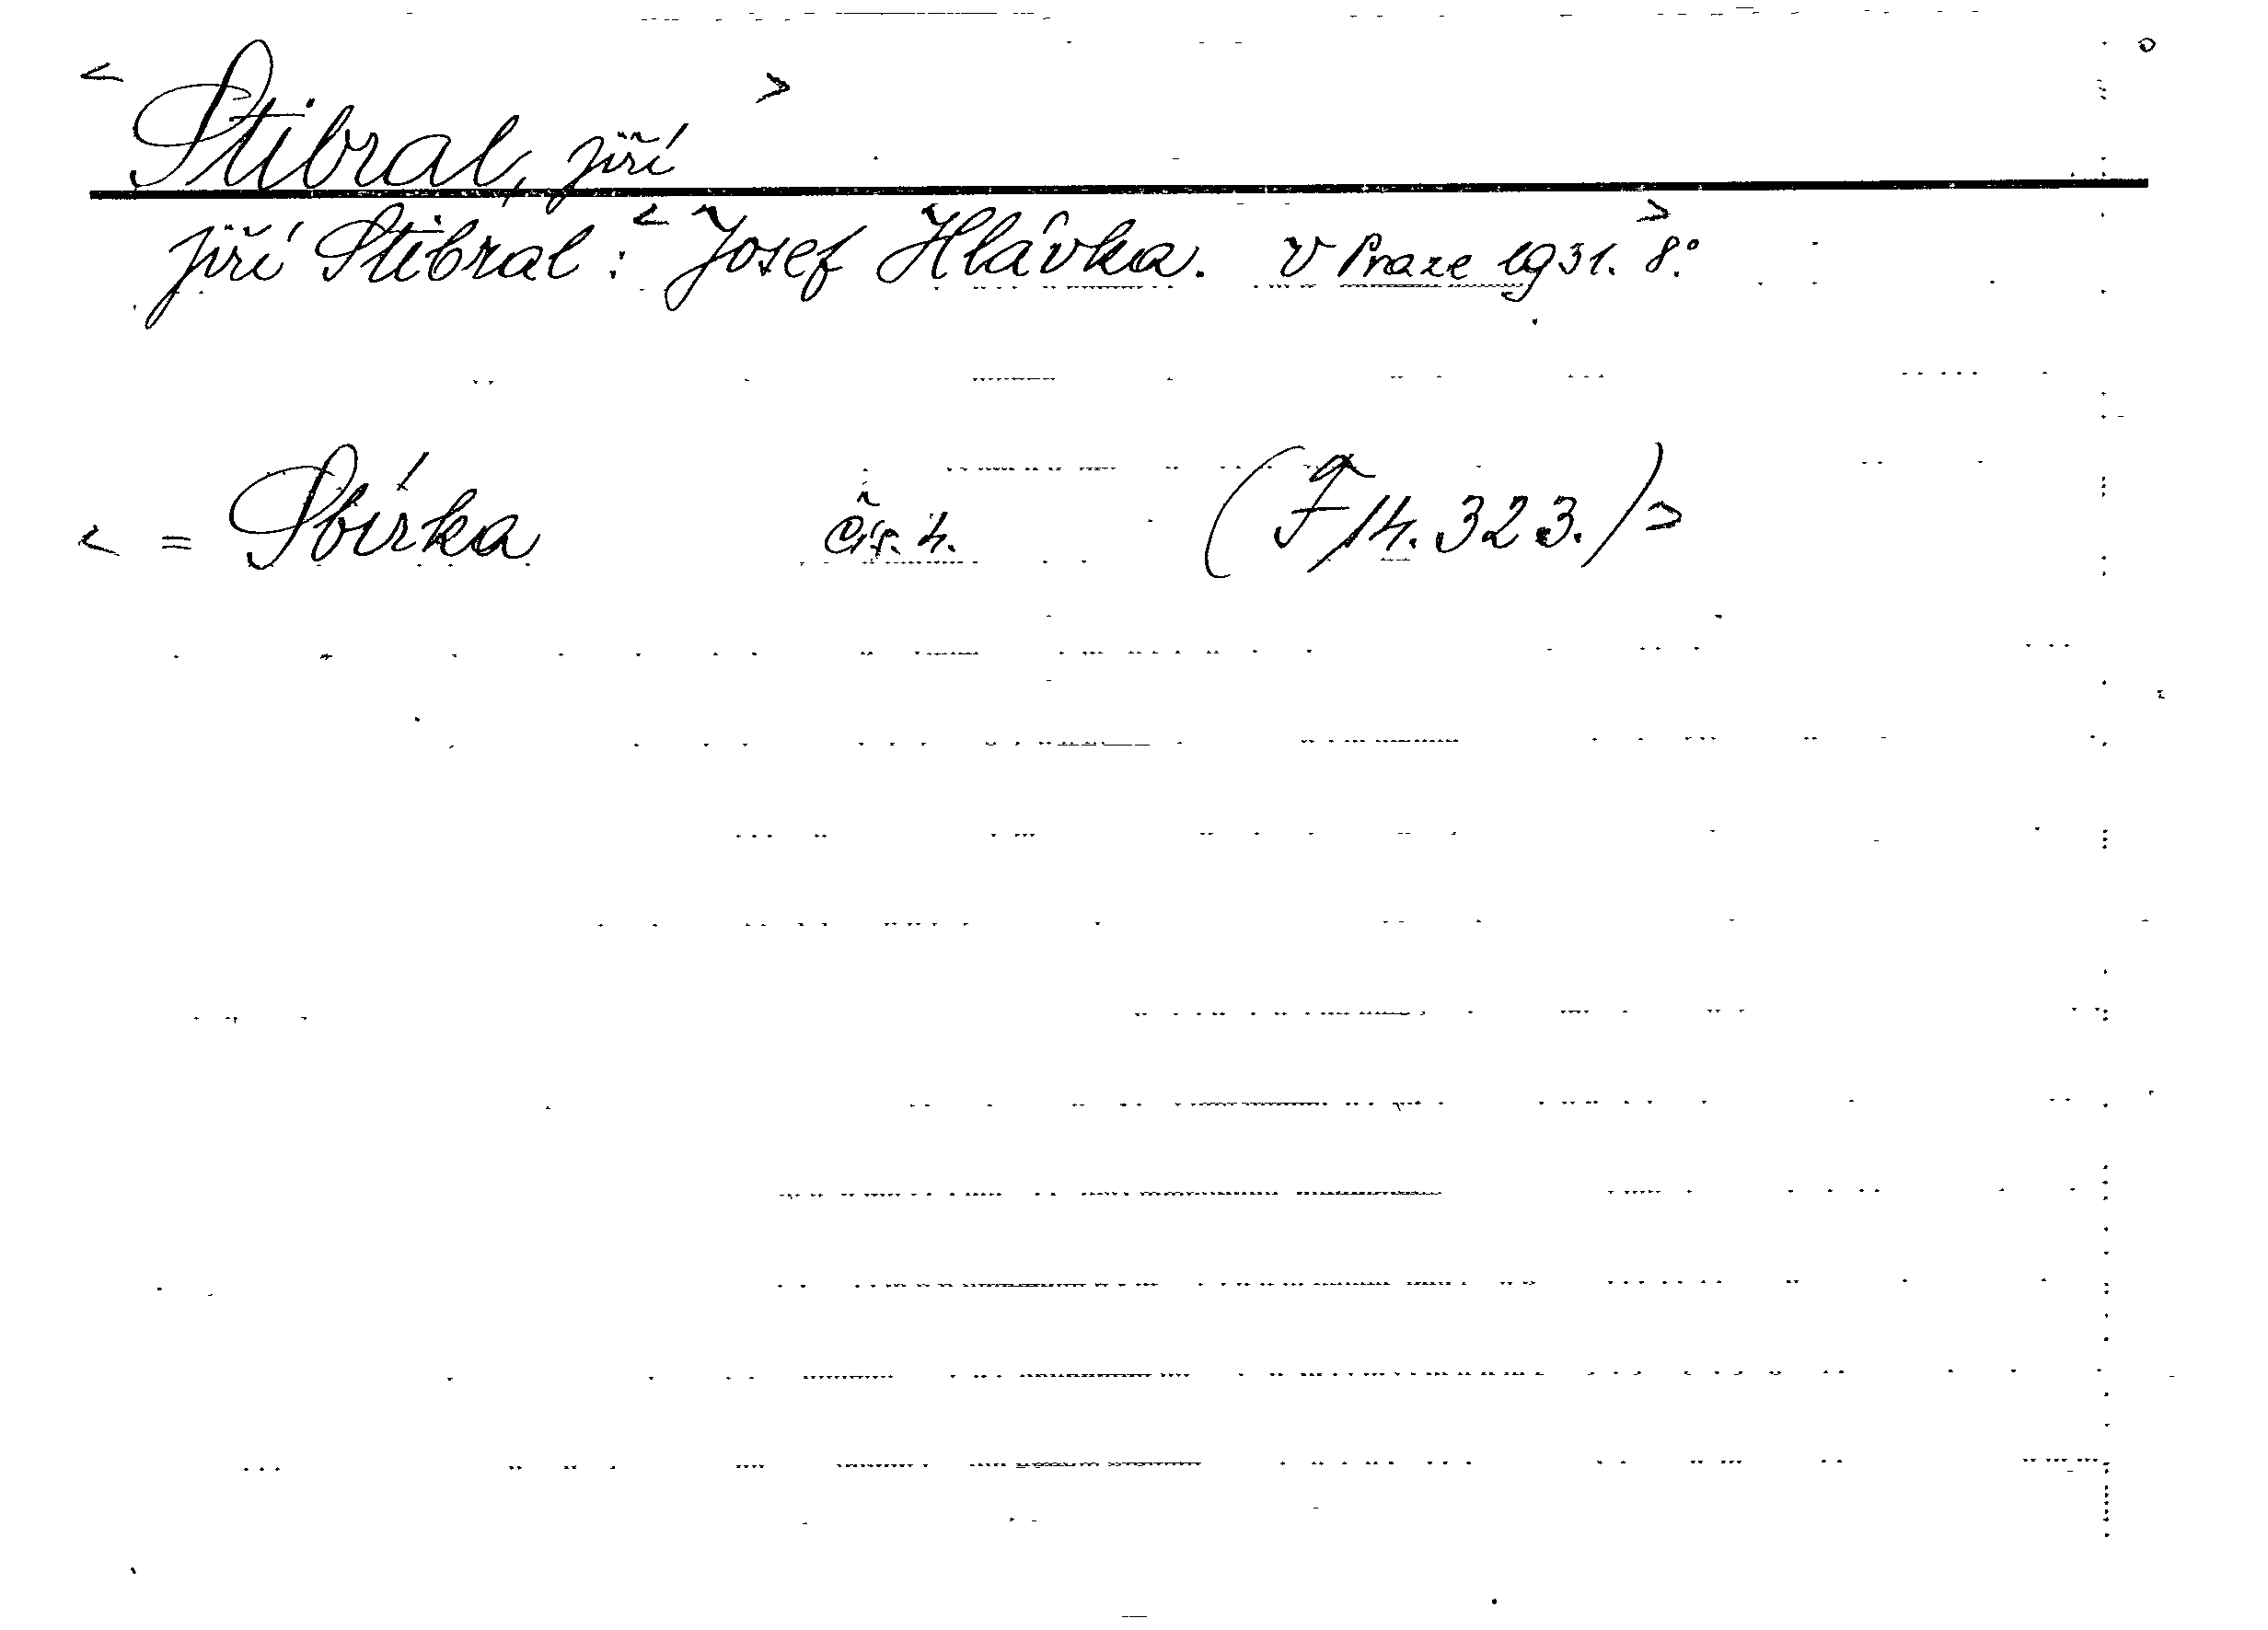 < Stibral, Jiří >
Jiří Stibral: < Josef Hlávka. V Praze 1931. 8.° >
< = Sbírka čís. 4. (F 14.323.) >